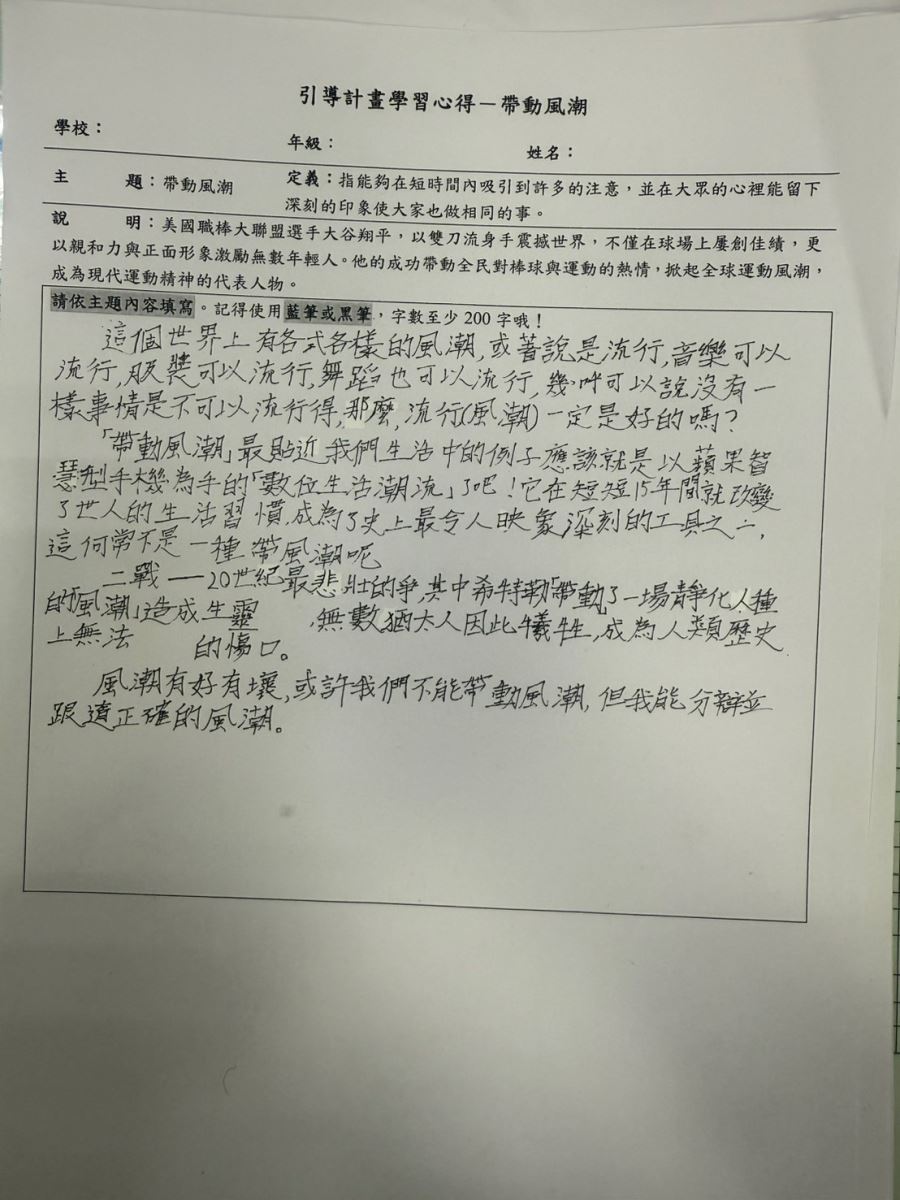 引導計畫學習心得－帶動風潮
學校：
年級：
姓名：
主 題：帶動風潮
定義：指能夠在短時間內吸引到許多的注意，並在大眾的心裡能留下
深刻的印象使大家也做相同的事。
說 明：美國職棒大聯盟選手大谷翔平，以雙刀流身手震撼世界，不僅在球場上屢創佳績，更
以親和力與正面形象激勵無數年輕人。他的成功帶動全民對棒球與運動的熱情，掀起全球運動風潮，
成為現代運動精神的代表人物。
請依主題內容填寫。記得使用藍筆或黑筆，字數至少 200 字哦！
這個世界上有各式各樣的風潮,或著說是流行,音樂可以
流行,服裝可以流行,舞蹈也可以流行,幾吘可以說沒有一
樣事情是不可以流行得,那麼,流行(風潮)一定是好的嗎?
「帶動風潮」最貼近我們生活中的例子應該就是以蘋果智
慧型手機為手的「數位生活潮流」了吧!它在短短15年間就改變
了世人的生活習慣,成為了史上最令人映象深刻的工具之一,
這何常不是一種帶風潮呢
二戰──20世紀最悲壯的爭,其中希特勒「帶動」了一場靜化人種
的「風潮」造成生靈 ,無數猶太人因此犧牲,成為人類歷史
上無法 的傷口。
風潮有好有壞,或許我們不能帶動風潮,但我能分辯並
跟遠正確的風潮。